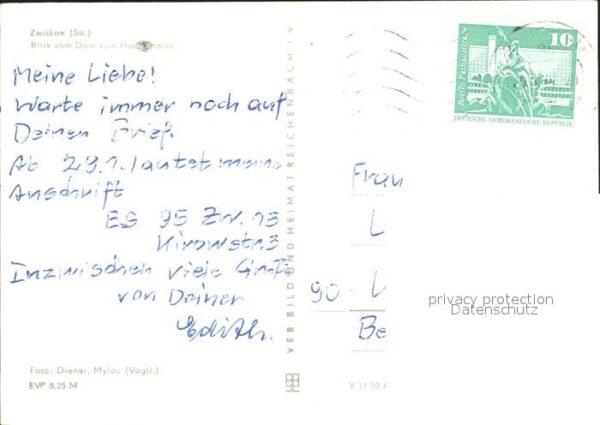 Zwickau (Sa.)
Blick vom Dom zum Hauptmarkt
Meine Liebe!
Warte immer noch auf
Deinen Brief.
Ab 29.1. lautet meine
Anschrift
95 Zw. 13
Kirowstr. 3
Inzwischen viele Grüße
von Deiner
Edith.
Foto: Diener, Mylau (Vogtl.)
EVP 0,25 M
VEB BILD UND HEIMAT REICHENBACH I V
V 11 50 A
10
Berlin, Rathausstraße
DEUTSCHE DEMOKRATISCHE REPUBLIK
Frau
L
90 L
Be
privacy protection
Datenschutz